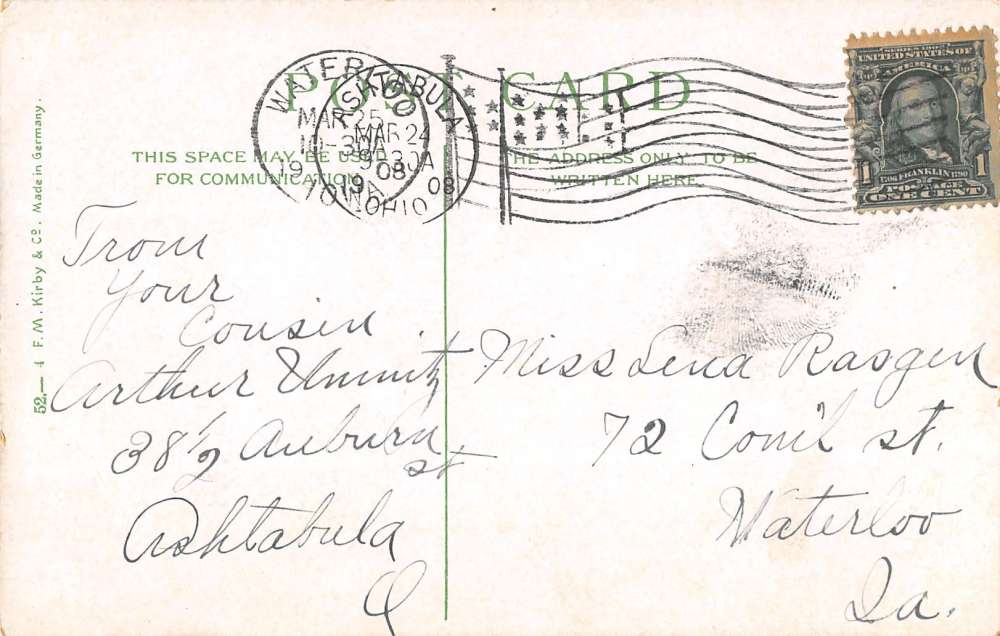 POST CARD
WATERLOO
MAR 25
10-30A
1908
IOWA
ASHTABULA
MAR 24
930A
1908
OHIO
SERIES 1902
UNITED STATES OF
AMERICA
1 1
1706 FRANKLIN 1790
POSTAGE
ONE CENT
THIS SPACE MAY BE USED
FOR COMMUNICATION
THE ADDRESS ONLY TO BE
WRITTEN HERE
52.—4 F.M. Kirby & Co. Made in Germany.
From
Your
Cousin
Arthur
38½ Auburn
st
Ashtabula
O
Miss Lena Rasgen
72 Com'l st.
Waterloo
Ia.